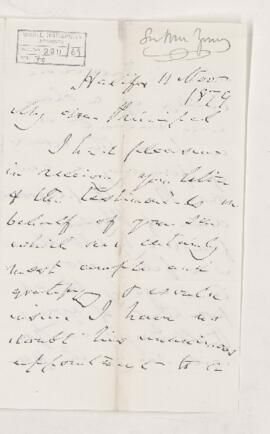 Sir Wm Young
Halifax 11 Nov
1879
My dear Principal
I had pleasure
in receiving your letter
& the testimonials in
behalf of your son
which are certainly
most ample and
gratifying &
I have no
doubt his
appointment to a